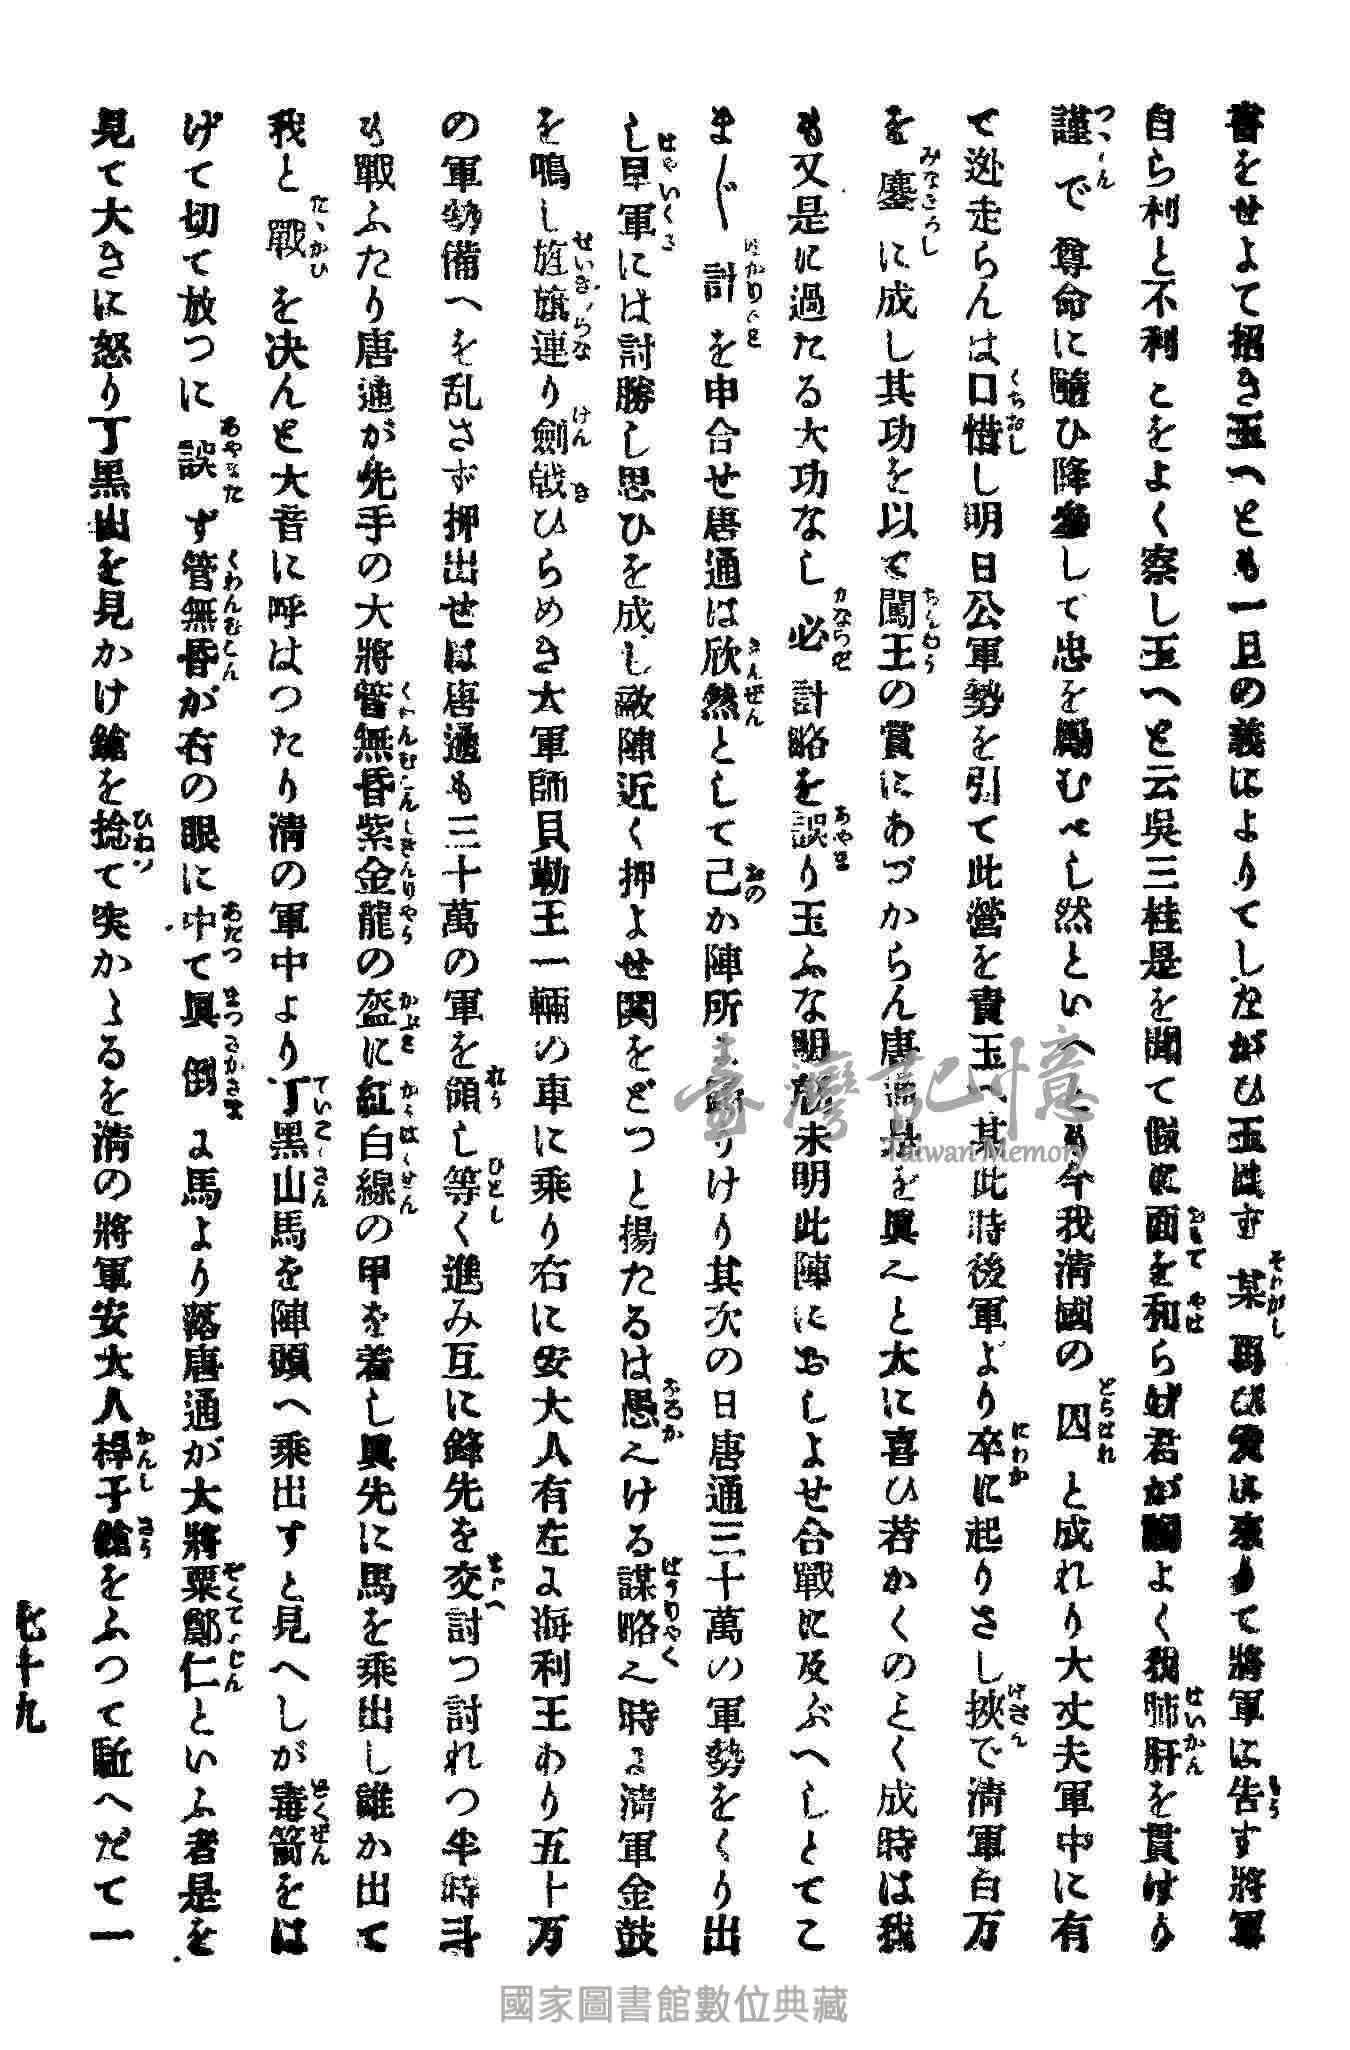 書をせよて招き玉へども一旦の義によりてしたがひ玉はず某再び爰に来りて將軍に告す將軍
自ら利と不利とをよく察し玉へと云呉三桂是を聞て假に面を和らげ君が言よく我肺肝を貫けり
謹で尊命に隨ひ降參して忠を勵むべし然といへとも今我清國の囚と成れり大丈夫軍中に有
て迯走らんは口惜し明日公軍勢を引て此營を責玉へ某此時後軍より卒に起りさし挾で清軍百万
を鏖に成し其功を以て闖王の賞にあづからん唐通是を眞へと大に喜ひ若かくのとく成時は我
も又是に過たる大功なし必計略を誤り玉ふな明朝未明此陣におしよせ合戰に及ぶへしとてこ
ま〴〵計を申合せ唐通は欣然として己か陣所に歸りけり其次の日唐通三十萬の軍勢をくり出
し早軍には討勝し思ひを成し敵陣近く押よせ関をどつと揚たるは愚へける謀略へ時に清軍金鼓
を鳴し旌旗連り劍戟ひらめき大軍師貝勒王一輛の車に乘り右に安大人有左に海利王わり五十万
の軍勢備へを乱さず押出せは唐通も三十萬の軍を領し等く進み互に鋒先を交討つ討れつ半時斗
り戰ふたり唐通が先手の大將菅無昏紫金龍の盔に紅白線の甲を着し眞先に馬を乘出し誰か出て
我と戰を决んと大音に呼はつたり清の軍中より丁黒山馬を陣頭へ乘出すと見へしが毒箭をは
げて切て放つに誤ず菅無昏が右の眼に中て眞倒に馬より落唐通が大將粟鄭仁といふ者是を
見て大きに怒り丁黒山を見かけ鎗を捻て突かゝるを清の將軍安大人桿子鎗をふつて駈へだて一
七十九
臺灣記憶
Taiwan Memory
國家圖書館數位典藏